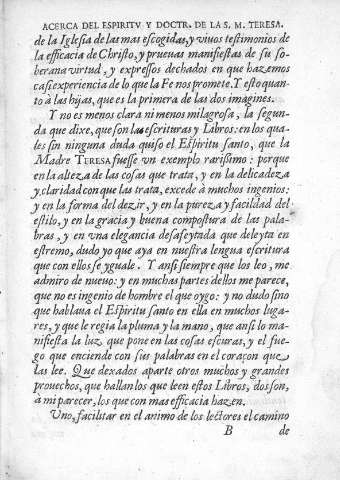 ACERCA DEL ESPIRITV Y DOCTR. DE LA S. M. TERESA.
de la Iglesia de las mas escogidas, y viuos testimonios de
la efficacia de Christo, y pruevas manifiestas de su so-
berana virtud, y expressos dechados en que hazemos
casi experiencia de lo que la Fe nos promete. Y esto quan-
to à las hijas, que es la primera de las dos imagines.
Y no es menos clara ni menos milagrosa, la segun-
da que dixe, que son las escrituras y Libros: en los qua-
les sin ninguna duda quiso el Espiritu santo, que la
Madre TERESA fuesse vn exemplo rarissimo: porque
en la alteza de las cosas que trata, y en la delicadeza
y claridad con que las trata, excede à muchos ingenios:
y en la forma del dezir, y en la pureza y facilidad del
estilo, y en la gracia y buena compostura de las pala-
bras, y en vna elegancia desafeytada que deleyta en
estremo, dudo yo que aya en nuestra lengua escritura
que con ellos se yguale. Y ansi siempre que los leo, me
admiro de nuevo: y en muchas partes dellos me parece,
que no es ingenio de hombre el que oygo: y no dudo sino
que hablaua el Espiritu santo en ella en muchos luga-
res, y que le regia la pluma y la mano, que ansi lo ma-
nifiesta la luz que pone en las cosas escuras, y el fue-
go que enciende con sus palabras en el coraçon que
las lee. Que dexados aparte otros muchos y grandes
prouechos, que hallan los que leen estos Libros, dos son,
à mi parecer, los que con mas efficacia hazen.
Uno, facilitar en el animo de los lectores el camino
B de